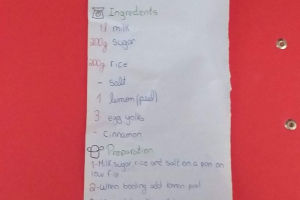 Ingredents
1l milk
200g sugar
200g rice
- salt
1 lemon (peel)
3 egg yolks
- cinnamon
Preparation
1-Milk, sugar, rice and salt on a pan on
low fire
2-When boiling add lemon peel